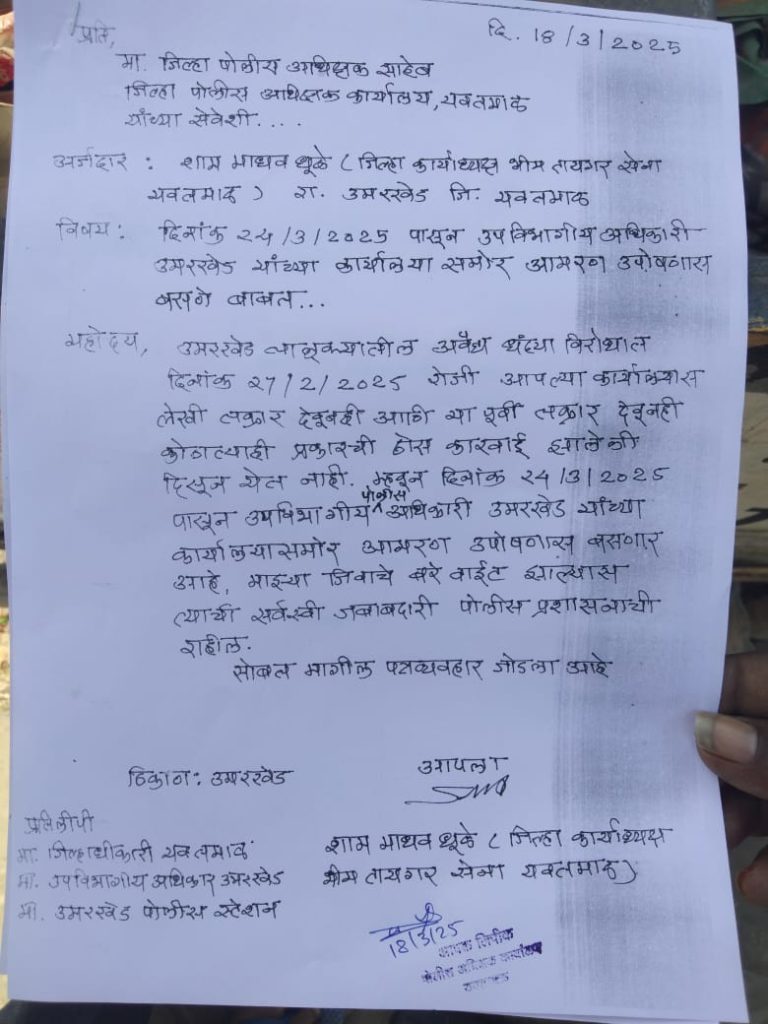 प्रति,
दि. 18/3/2025
मा. जिल्हा पोलीस अधिक्षक साहेब
जिल्हा पोलीस अधिक्षक कार्यालय, यवतमाळ
यांच्या सेवेशी....
अर्जदार : शाम माधव धूळे ( जिल्हा कार्याध्यक्ष भीम टायगर सेना
यवतमाळ ) रा. उमरखेड जि. यवतमाळ
विषय : दिनांक 24/3/2025 पासून उपविभागीय अधिकारी
उमरखेड यांच्या कार्यालया समोर आमरण उपोषणास
बसणे बाबत...
महोदय, उमरखेड तालूक्यातील अवैध धंद्या विरोधात
दिनांक 27/2/2025 रोजी आपल्या कार्यालयास
लेखी तक्रार देवूनही आणि या पूर्वी तक्रार देवूनही
कोणत्याही प्रकारची ठोस कारवाई झालेली
दिसून येत नाही. म्हणून दिनांक 24/3/2025
पासून उपविभागीय पोलीस अधिकारी उमरखेड यांच्या
कार्यालयासमोर आमरण उपोषणास बसणार
आहे, माझ्या जिवाचे बरे वाईट झाल्यास
त्याची सर्वस्वी जबाबदारी पोलीस प्रशासनाची
राहील.
सोबत मागील पत्रव्यवहार जोडला आहे
ठिकाण : उमरखेड
आपला
प्रतिलीपी
मा. जिल्हाधीकारी यवतमाळ
मा. उपविभागीय अधिकार उमरखेड
मा. उमरखेड पोलीस स्टेशन
शाम माधव धूळे ( जिल्हा कार्याध्यक्ष
भीम टायगर सेना यवतमाळ)
18/3/25
आवक लिपीक
पोलीस अधिक्षक कार्यालय
यवतमाळ